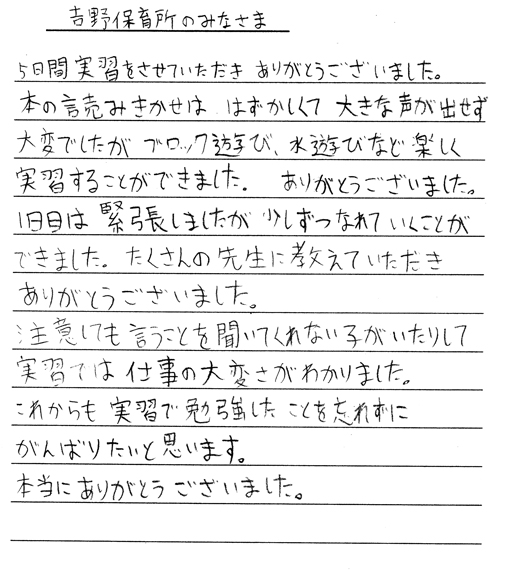 吉野保育所のみなさま
5日間実習をさせていただき ありがとうございました。
本の読みきかせは はずかしくて 大きな声が出せず
大変でしたが ブロック遊び、水遊びなど 楽しく
実習することができました。 ありがとうございました。
1日目は 緊張しましたが 少しずつなれて いくことが
できました。たくさんの先生に教えていただき
ありがとうございました。
注意しても言うことを聞いてくれない子がいたりして
実習では 仕事の大変さがわかりました。
これからも 実習で勉強した ことを忘れずに
がんばりたいと思います。
本当にありがとう ございました。